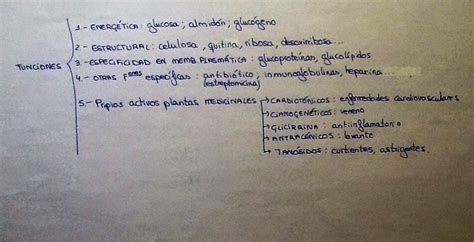 1.- ENERGÉTICA: glucosa; almidón; glucógeno
2.- ESTRUCTURAL: celulosa, quitina, ribosa, desoxirribosa...
FUNCIONES
3.- ESPECIFICIDAD EN MEMB. PLASMÁTICA: glucoproteínas, glucolípidos
4.- OTRAS Fones específicas: antibiótico; inmunoglobulinas, heparina...
(estreptomicina)
5.- Ppios activos plantas MEDICINALES → CARDIOTÓNICOS: enfermedades cardiovasculares
→ CIANOGENÉTICOS: veneno
→ GLICIRRINA: antiinflamatorio
→ ANTRACÉNICOS: laxante
→ TANÓSIDOS: curtientes, astrigentes.